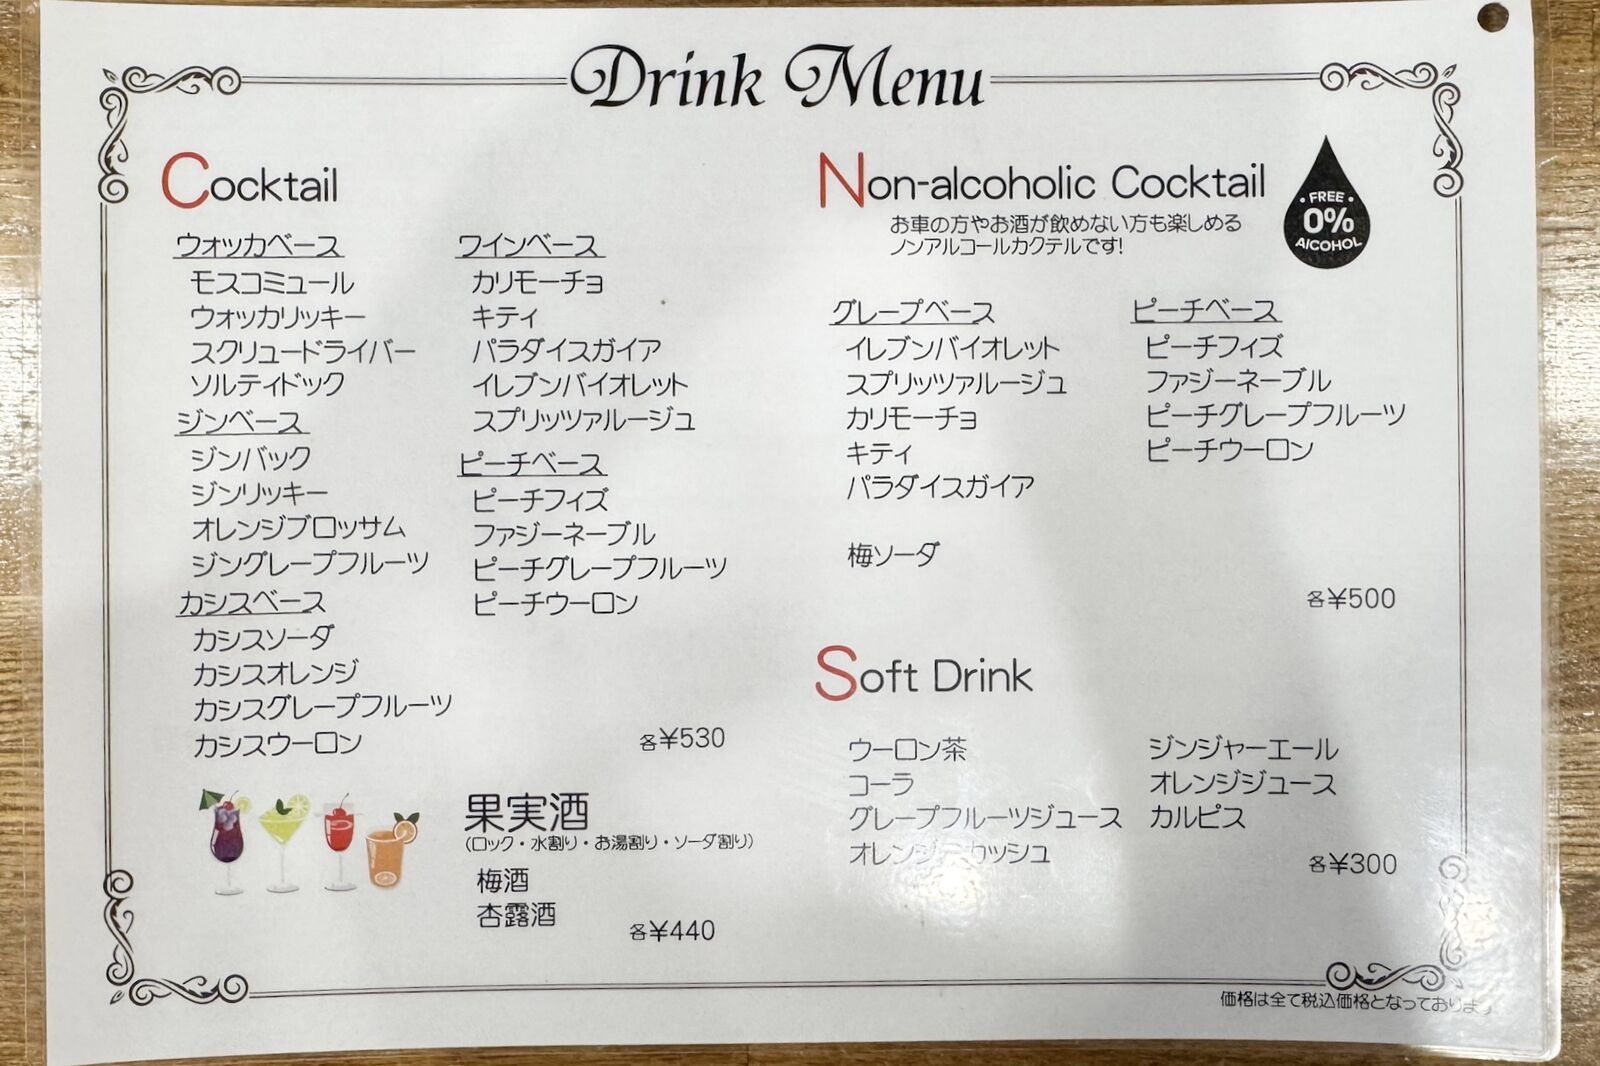 Drink Menu
Cocktail
ウォッカベース
モスコミュール
ウォッカリッキー
スクリュードライバー
ソルティドック
ジンベース
ジンバック
ジンリッキー
オレンジブロッサム
ジングレープフルーツ
カシスベース
カシスソーダ
カシスオレンジ
カシスグレープフルーツ
カシスウーロン
ワインベース
カリモーチョ
キティ
パラダイスガイア
イレブンバイオレット
スプリッツァルージュ
ピーチベース
ピーチフィズ
ファジーネーブル
ピーチグレープフルーツ
ピーチウーロン
各¥530
果実酒
(ロック・水割り・お湯割り・ソーダ割り)
梅酒
杏露酒
各¥440
Non-alcoholic Cocktail
お車の方やお酒が飲めない方も楽しめる
ノンアルコールカクテルです!
FREE
0%
AlCOHOL
グレープベース
イレブンバイオレット
スプリッツァルージュ
カリモーチョ
キティ
パラダイスガイア
梅ソーダ
ピーチベース
ピーチフィズ
ファジーネーブル
ピーチグレープフルーツ
ピーチウーロン
各¥500
Soft Drink
ウーロン茶
コーラ
グレープフルーツジュース
オレンジカッシュ
ジンジャーエール
オレンジジュース
カルピス
各¥300
価格は全て税込価格となっております